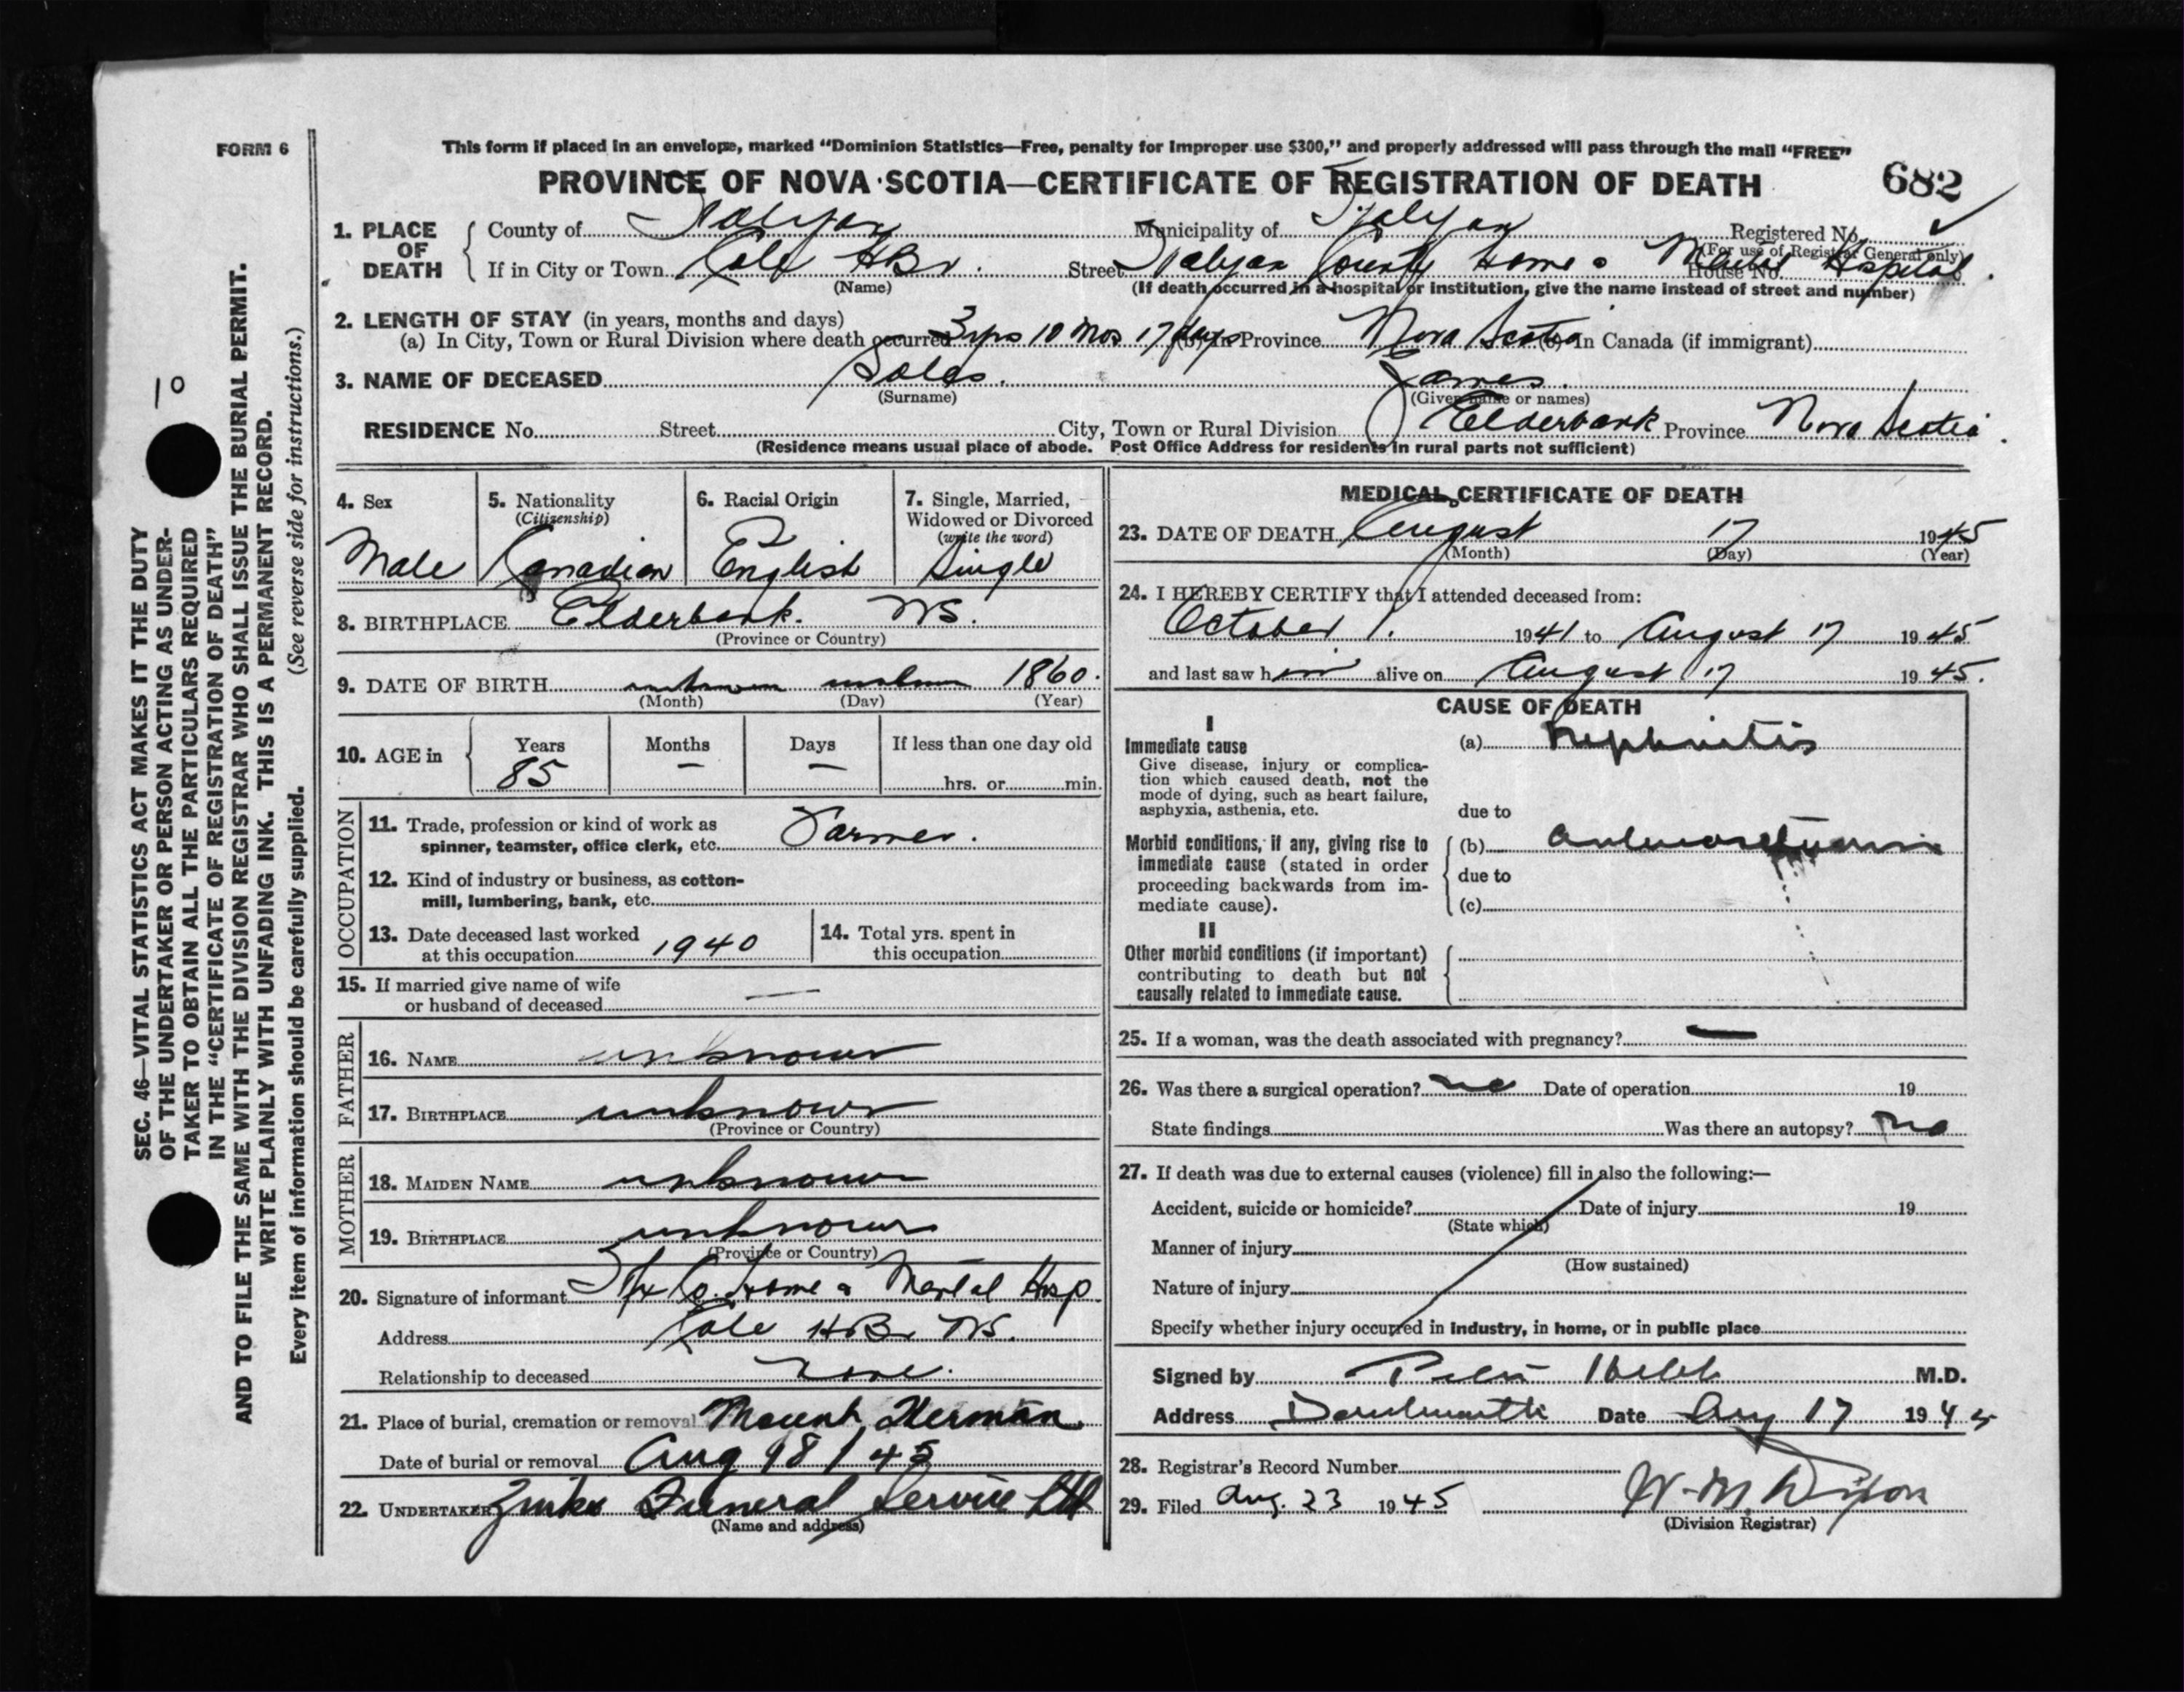 FORM 6
This form if placed in an envelope, marked “Dominion Statistics—Free, penalty for improper use $300,” and properly addressed will pass through the mail “FREE”
PROVINCE OF NOVA SCOTIA—CERTIFICATE OF REGISTRATION OF DEATH 682
1. PLACE OF DEATH County of Halifax Municipality of Halifax Registered No.
(For use of Registrar General only)
If in City or Town Cole HBr. Street Halifax County Home & Mental Hospital. House No.
(Name) (If death occurred in a hospital or institution, give the name instead of street and number)
2. LENGTH OF STAY (in years, months and days)
(a) In City, Town or Rural Division where death occurred 3 yrs 10 mos 17 days Province Nova Scotia In Canada (if immigrant)
3. NAME OF DECEASED James.
(Surname) (Given name or names)
RESIDENCE No. Street City, Town or Rural Division Elderbank Province Nova Scotia.
(Residence means usual place of abode. Post Office Address for residents in rural parts not sufficient)
10
SEC. 46—VITAL STATISTICS ACT MAKES IT THE DUTY
OF THE UNDERTAKER OR PERSON ACTING AS UNDER-
TAKER TO OBTAIN ALL THE PARTICULARS REQUIRED
IN THE “CERTIFICATE OF REGISTRATION OF DEATH”
AND TO FILE THE SAME WITH THE DIVISION REGISTRAR WHO SHALL ISSUE THE BURIAL PERMIT.
WRITE PLAINLY WITH UNFADING INK. THIS IS A PERMANENT RECORD.
Every item of information should be carefully supplied. (See reverse side for instructions.)
4. Sex
Male
5. Nationality
(Citizenship)
Canadian
6. Racial Origin
English
7. Single, Married,
Widowed or Divorced
(write the word)
Single
8. BIRTHPLACE Elderbank. NS.
(Province or Country)
9. DATE OF BIRTH unknown unknown 1860.
(Month) (Day) (Year)
10. AGE in Years Months Days If less than one day old
85 — — hrs. or min.
OCCUPATION
11. Trade, profession or kind of work as
spinner, teamster, office clerk, etc. Farmer.
12. Kind of industry or business, as cotton-
mill, lumbering, bank, etc.
13. Date deceased last worked
at this occupation 1940
14. Total yrs. spent in
this occupation
15. If married give name of wife
or husband of deceased —
FATHER
16. NAME unknown
17. BIRTHPLACE unknown
(Province or Country)
MOTHER
18. MAIDEN NAME unknown
19. BIRTHPLACE unknown
(Province or Country)
20. Signature of informant Hfx Co. Home & Mental Hosp
Address Cole HBr NS.
Relationship to deceased None.
21. Place of burial, cremation or removal Mount Herman
Date of burial or removal Aug 18 / 45
22. UNDERTAKER Zinks Funeral Service Ltd
(Name and address)
MEDICAL CERTIFICATE OF DEATH
23. DATE OF DEATH August 17 1945
(Month) (Day) (Year)
24. I HEREBY CERTIFY that I attended deceased from:
October 1. 1941 to August 17 1945
and last saw him alive on August 17 1945.
CAUSE OF DEATH
I
Immediate cause
Give disease, injury or complica-
tion which caused death, not the
mode of dying, such as heart failure,
asphyxia, asthenia, etc.
(a) Nephritis
due to
Morbid conditions, if any, giving rise to
immediate cause (stated in order
proceeding backwards from im-
mediate cause).
(b)
due to
(c)
II
Other morbid conditions (if important)
contributing to death but not
causally related to immediate cause.
25. If a woman, was the death associated with pregnancy? —
26. Was there a surgical operation? no Date of operation 19
State findings Was there an autopsy? no
27. If death was due to external causes (violence) fill in also the following:—
Accident, suicide or homicide? Date of injury 19
(State which)
Manner of injury
(How sustained)
Nature of injury
Specify whether injury occurred in industry, in home, or in public place
Signed by M.D.
Address Dartmouth Date Aug 17 1945
28. Registrar's Record Number
29. Filed Aug. 23 1945 W. M. Dixon
(Division Registrar)